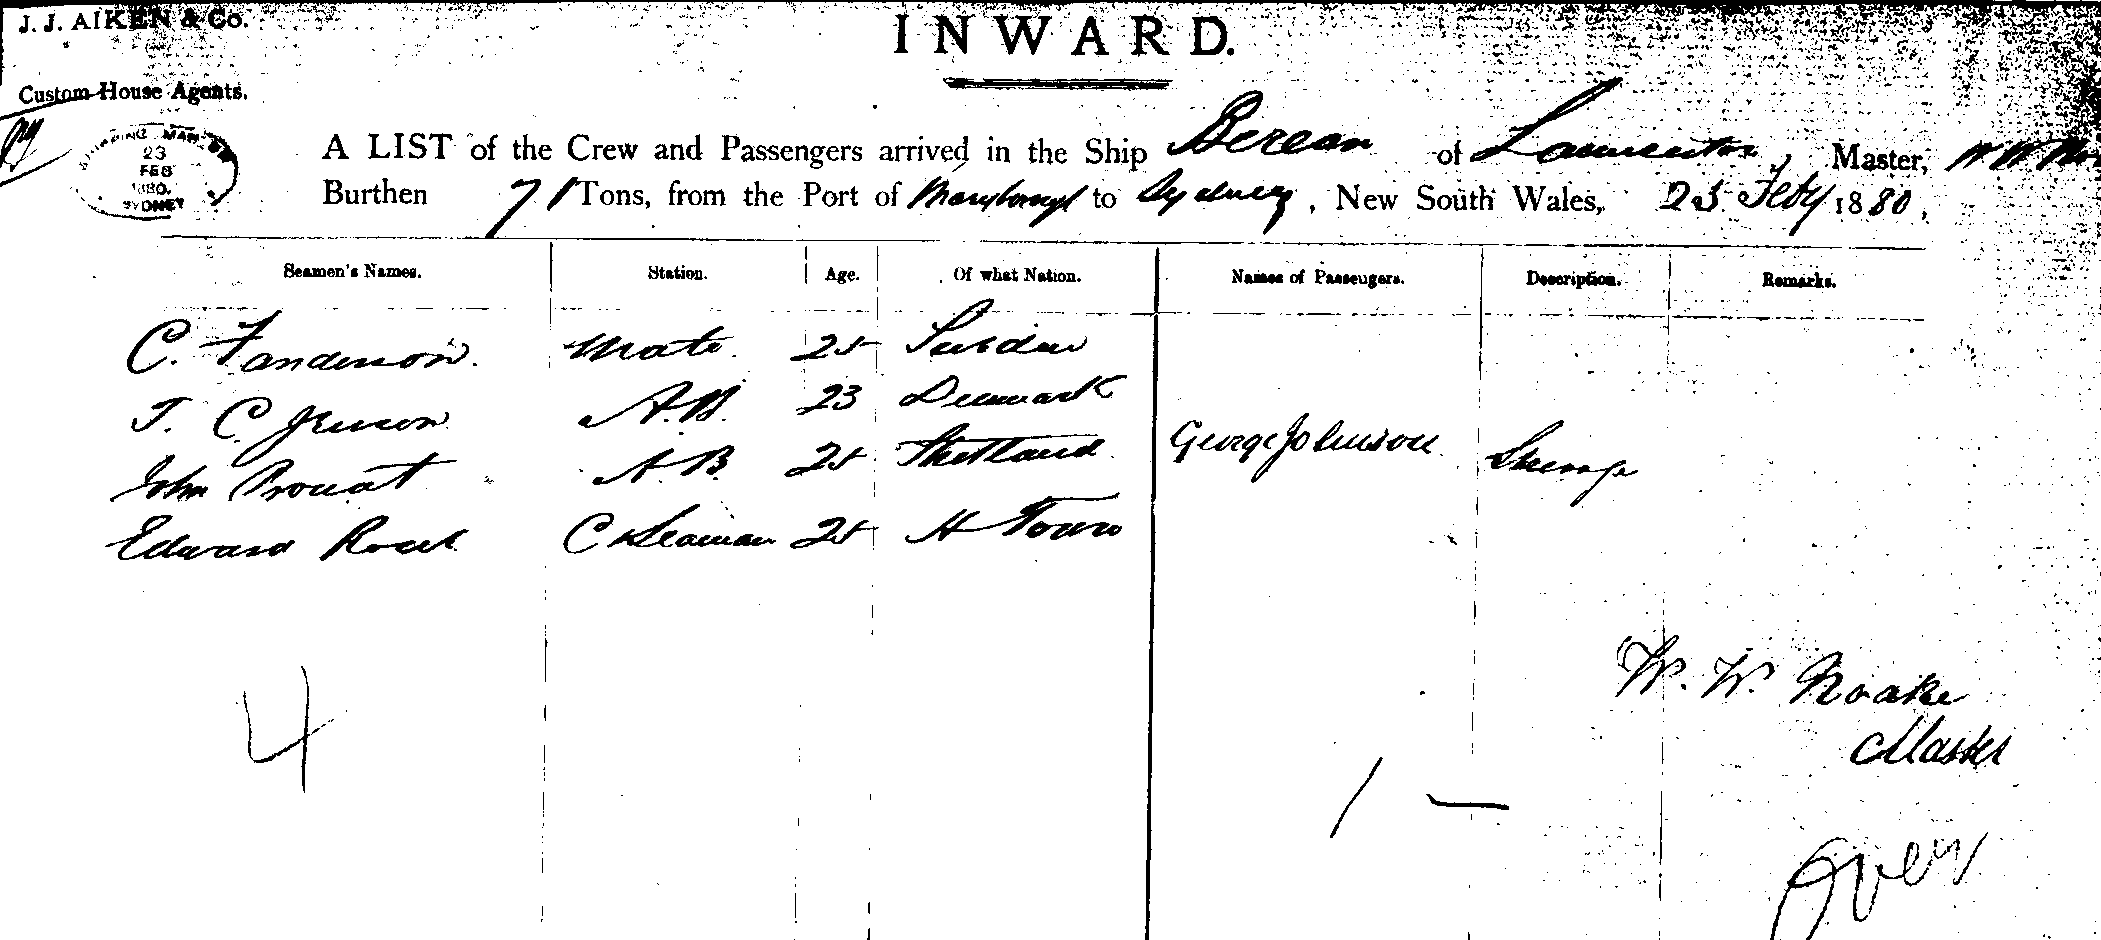 J. J. AIKEN & Co.
INWARD.
Custom House Agents.
SHIPPING MASTER
23
FEB
1880.
SYDNEY
A LIST of the Crew and Passengers arrived in the Ship Berean of Launceston, Master, W W
Burthen 71 Tons, from the Port of Maryborough to Sydney, New South Wales, 23 Feby 1880,
Seamen's Names. Station. Age. Of what Nation. Names of Passengers. Description. Remarks.
C. Mate 25
J. C. Jenson A.B. 23 Denmark
John Prouat A.B. 25 Shetland George Johnson
Edward C Seaman 25 H Town
W. W. Noake
Master
4
1 —
Over